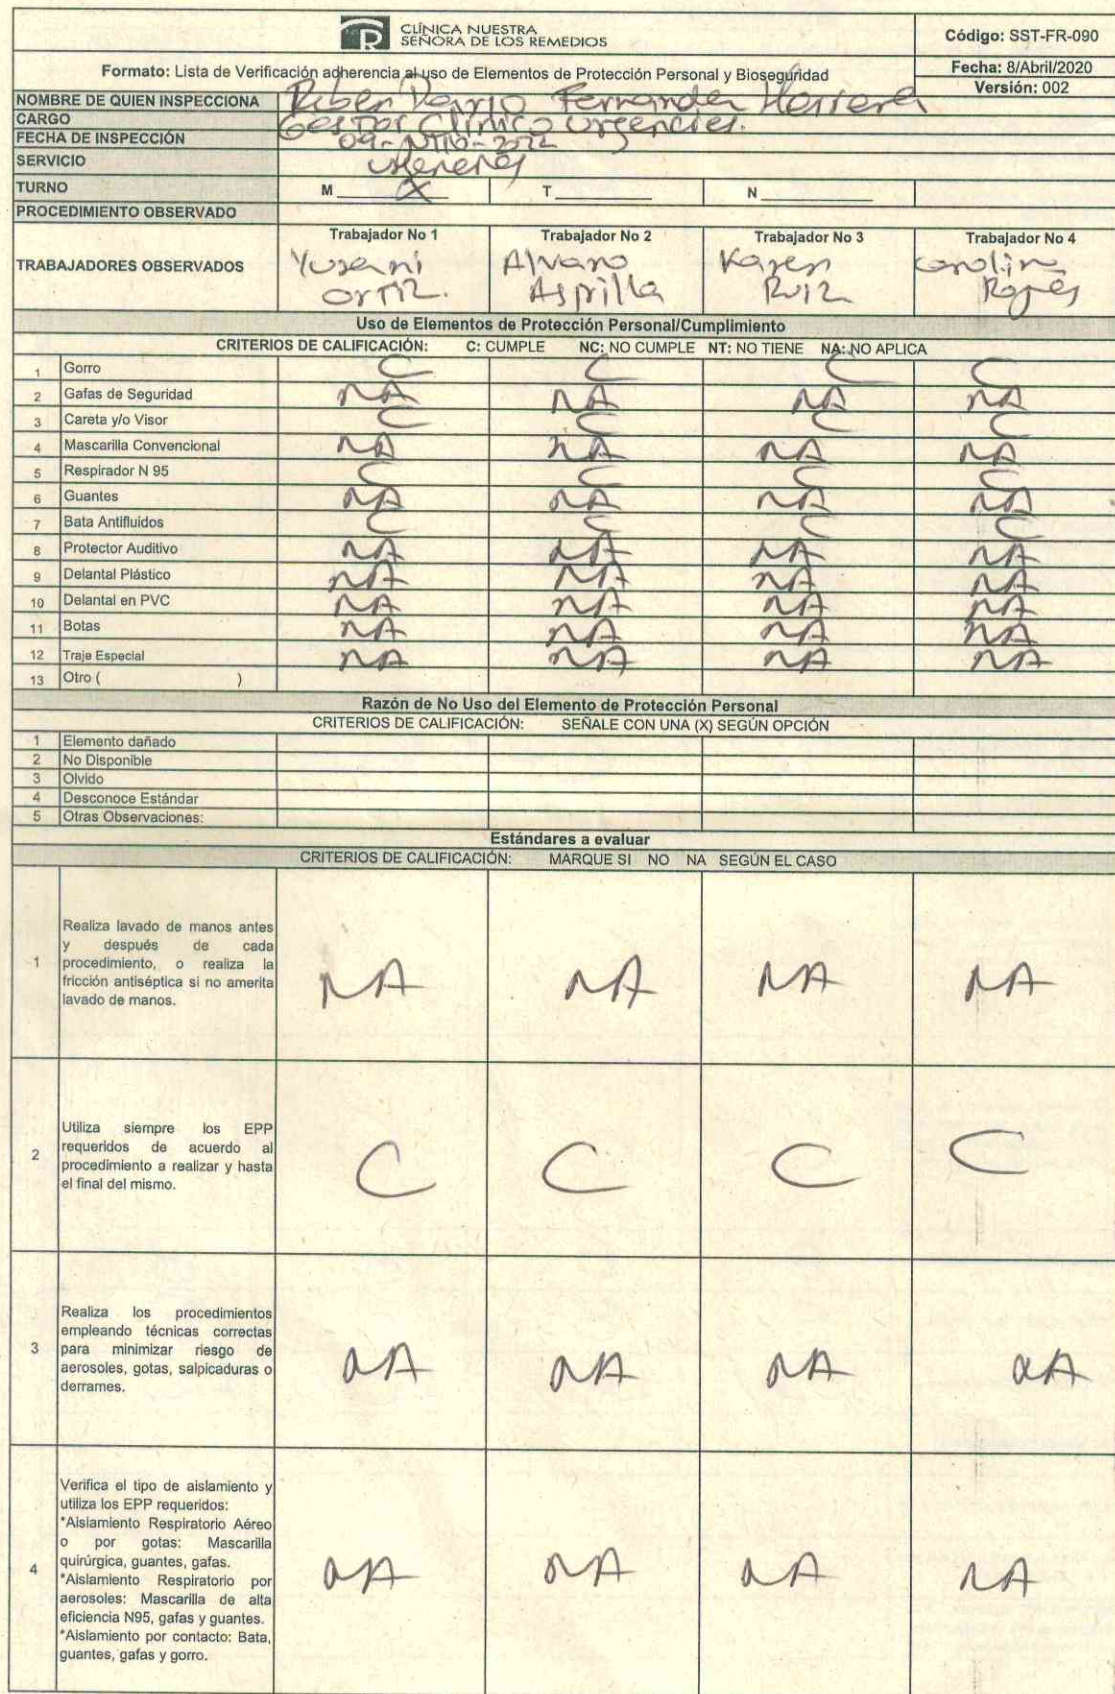 CLÍNICA NUESTRA
SEÑORA DE LOS REMEDIOS
Código: SST-FR-090
Formato: Lista de Verificación adherencia al uso de Elementos de Protección Personal y Bioseguridad
Fecha: 8/Abril/2020
Versión: 002
NOMBRE DE QUIEN INSPECCIONA Ruben Dario Fernandez Herrera
CARGO Gestor Clinico Urgencias.
FECHA DE INSPECCIÓN 09-
SERVICIO
TURNO M X T N
PROCEDIMIENTO OBSERVADO
TRABAJADORES OBSERVADOS
Trabajador No 1 Trabajador No 2 Trabajador No 3 Trabajador No 4
Yuseni Alvaro Karen Carolina
Ortiz. Asprilla Ruiz
Uso de Elementos de Protección Personal/Cumplimiento
CRITERIOS DE CALIFICACIÓN: C: CUMPLE NC: NO CUMPLE NT: NO TIENE NA: NO APLICA
1 Gorro C C C C
2 Gafas de Seguridad NA NA NA NA
3 Careta y/o Visor C C C C
4 Mascarilla Convencional NA NA NA NA
5 Respirador N 95 C C C C
6 Guantes NA NA NA NA
7 Bata Antifluidos C C C C
8 Protector Auditivo NA NA NA NA
9 Delantal Plástico NA NA NA NA
10 Delantal en PVC NA NA NA NA
11 Botas NA NA NA NA
12 Traje Especial NA NA NA NA
13 Otro ( )
Razón de No Uso del Elemento de Protección Personal
CRITERIOS DE CALIFICACIÓN: SEÑALE CON UNA (X) SEGÚN OPCIÓN
1 Elemento dañado
2 No Disponible
3 Olvido
4 Desconoce Estándar
5 Otras Observaciones:
Estándares a evaluar
CRITERIOS DE CALIFICACIÓN: MARQUE SI NO NA SEGÚN EL CASO
1
Realiza lavado de manos antes
y después de cada
procedimiento, o realiza la
fricción antiséptica si no amerita
lavado de manos.
NA NA NA NA
2
Utiliza siempre los EPP
requeridos de acuerdo al
procedimiento a realizar y hasta
el final del mismo.
C C C C
3
Realiza los procedimientos
empleando técnicas correctas
para minimizar riesgo de
aerosoles, gotas, salpicaduras o
derrames.
NA NA NA NA
4
Verifica el tipo de aislamiento y
utiliza los EPP requeridos:
*Aislamiento Respiratorio Aéreo
o por gotas: Mascarilla
quirúrgica, guantes, gafas.
*Aislamiento Respiratorio por
aerosoles: Mascarilla de alta
eficiencia N95, gafas y guantes.
*Aislamiento por contacto: Bata,
guantes, gafas y gorro.
NA NA NA NA